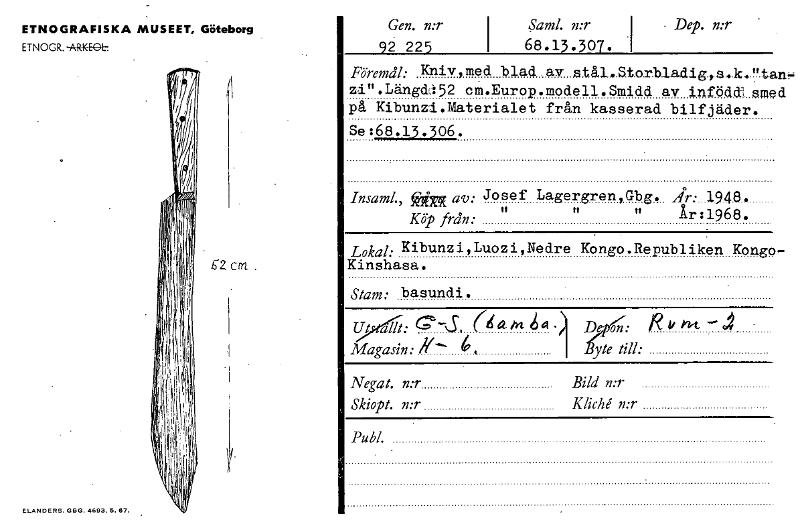 ETNOGRAFISKA MUSEET, Göteborg
ETNOGR. ARKEOL.
52 cm.
ELANDERS. GBG. 4693. 5. 67.
Gen. n:r
Saml. n:r
Dep. n:r
92 225
68.13.307.
Föremål: Kniv,med blad av stål.Storbladig,s.k."tan-
zi".Längd:52 cm.Europ.modell.Smidd av infödd smed
på Kibunzi.Materialet från kasserad bilfjäder.
Se:68.13.306.
Insaml., Gåva av: Josef Lagergren,Gbg. År: 1948.
Köp från: " " " År:1968.
Lokal: Kibunzi,Luozi,Nedre Kongo.Republiken Kongo-
Kinshasa.
Stam: basundi.
Utställt: G-S. (bamba.) Depon: Rum-2
Magasin: H-6. Byte till:
Negat. n:r Bild n:r
Skiopt. n:r Kliché n:r
Publ.